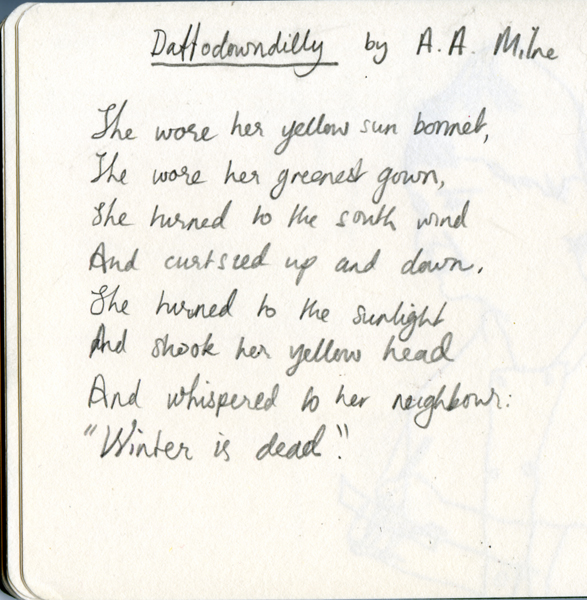 Daffodowndilly by A. A. Milne
She wore her yellow sun bonnet,
She wore her greenest gown,
She turned to the south wind
And curtsied up and down.
She turned to the sunlight
And shook her yellow head
And whispered to her neighbour:
"Winter is dead".